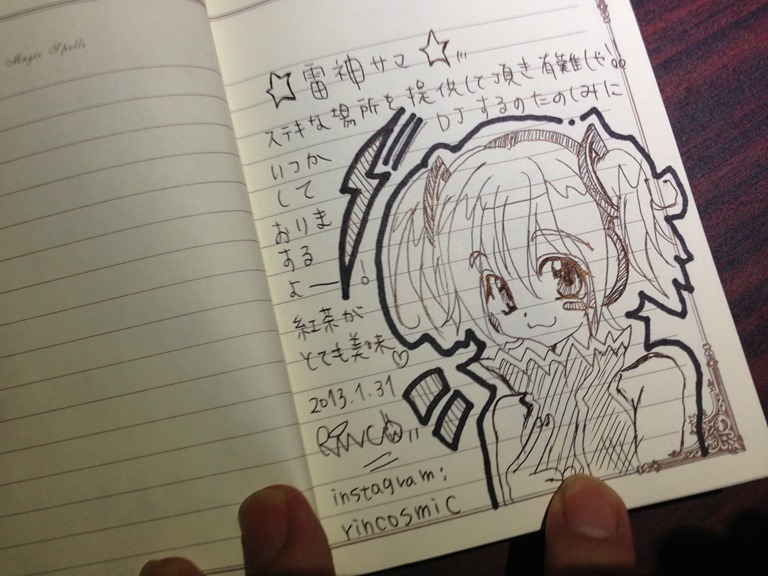 Magic Spells
☆雷神サマ☆
ステキな場所を提供して頂き有難しゃ!!
DJするのたのしみに
いつか
して
おりま
する
よー!
紅茶が
とても美味♡
2013.1.31
instagram:
rincosmic